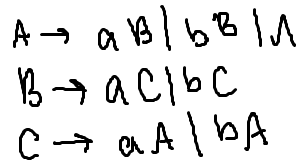 A → aB | bB | Λ
B → aC | bC
C → aA | bA